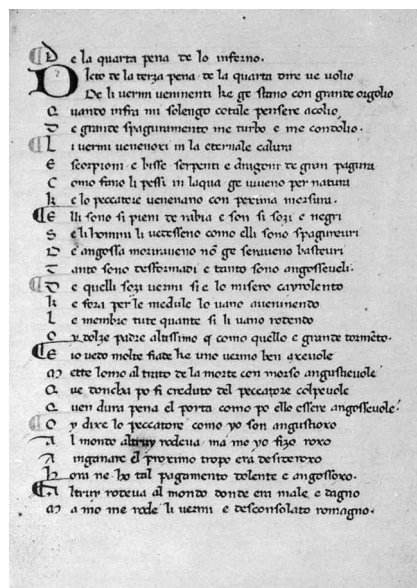 De la quarta pena de lo inferno.
Dicto de la terza pena de la quarta dire ve volio
De li vermi veninenti ke ge stano con grande orgolio
Quando infra mi solengo cotale pensere acolio
E grande spaguramento me turbo e me condolio.
Li vermi venenoxi in la eternale calura
E scorpioni e bisse serpenti e dragoni de gran pagura
Como fano li pessi in laqua ge viveno per natura
Ke lo peccatore venenano con pexima morsura.
Elli sono si pieni de rabia e son si sozi e negri
Se li homini li vedesseno como elli sono spagureuri
De angossa moriraveno no ge seraveno basteuri
Tanto sono desformadi e tanto sono angosseveli.
De quelli sozi vermi si e lo misero
Ke fora per le medule lo vano aveninendo
Le membre tute quante si li vano rodendo
Oy dolze padre altissimo q como quello e grande tormēto.
Eio vedo molte fiade ke uno vermo ben axevole
Mette lomo al trato de la morte con morso angustievole
Que doncha po fi creduto del peccatore colpevole
Quen dura pena el porta como po ello essere angossevole.
Oy dixe lo peccatore como yo son angustioxo
Al mondo altruy rodeva ma mo yo fizo roxo
A inganare el proximo tropo era desiteroxo
Hora ne ho tal pagamento dolente e angossoxo.
Altruy rodeva al mondo donde era male e dagno
Ma mo me rode li vermi e desconsolato romagno.